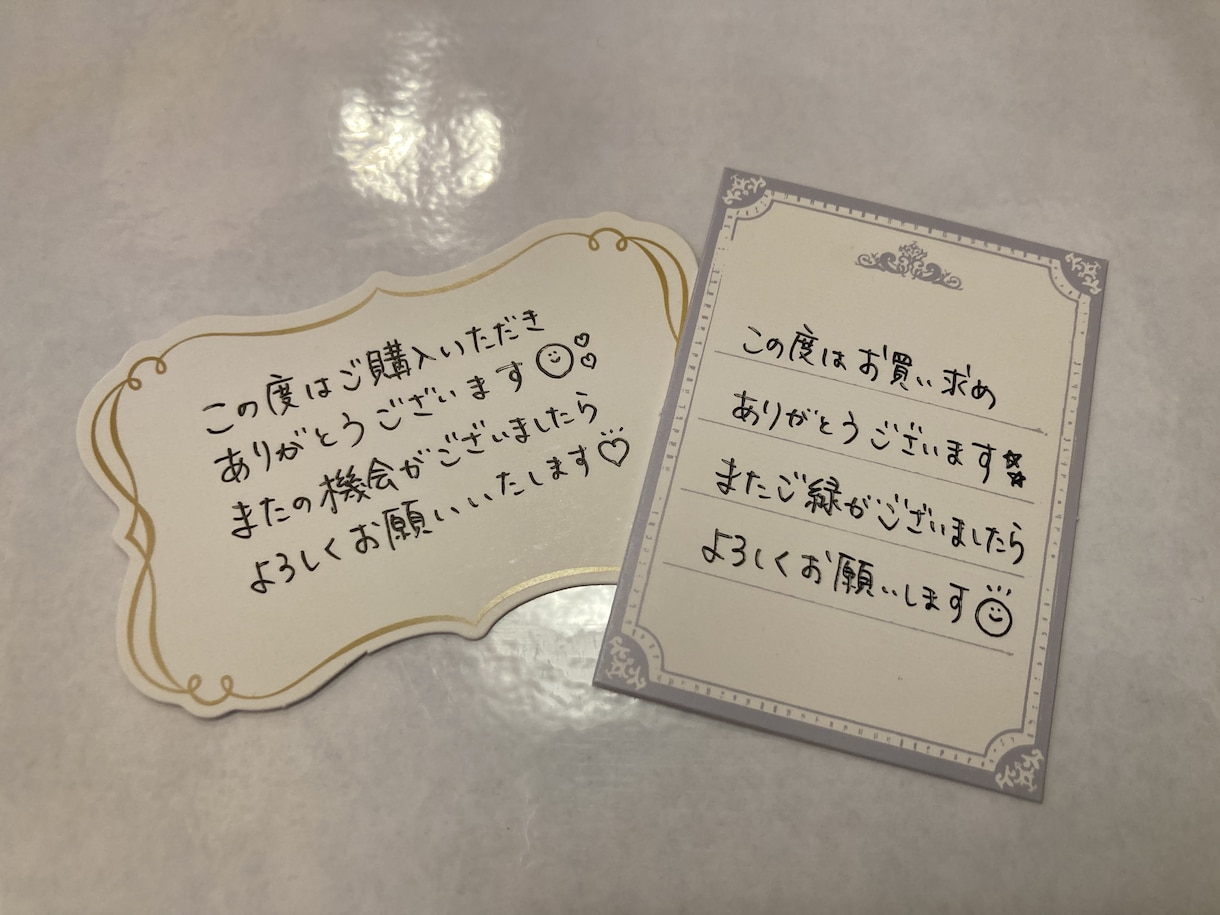 この度はご購入いただき
ありがとうございます
またの機会がございましたら
よろしくお願いいたします
この度はお買い求め
ありがとうございます
またご縁がございましたら
よろしくお願いします